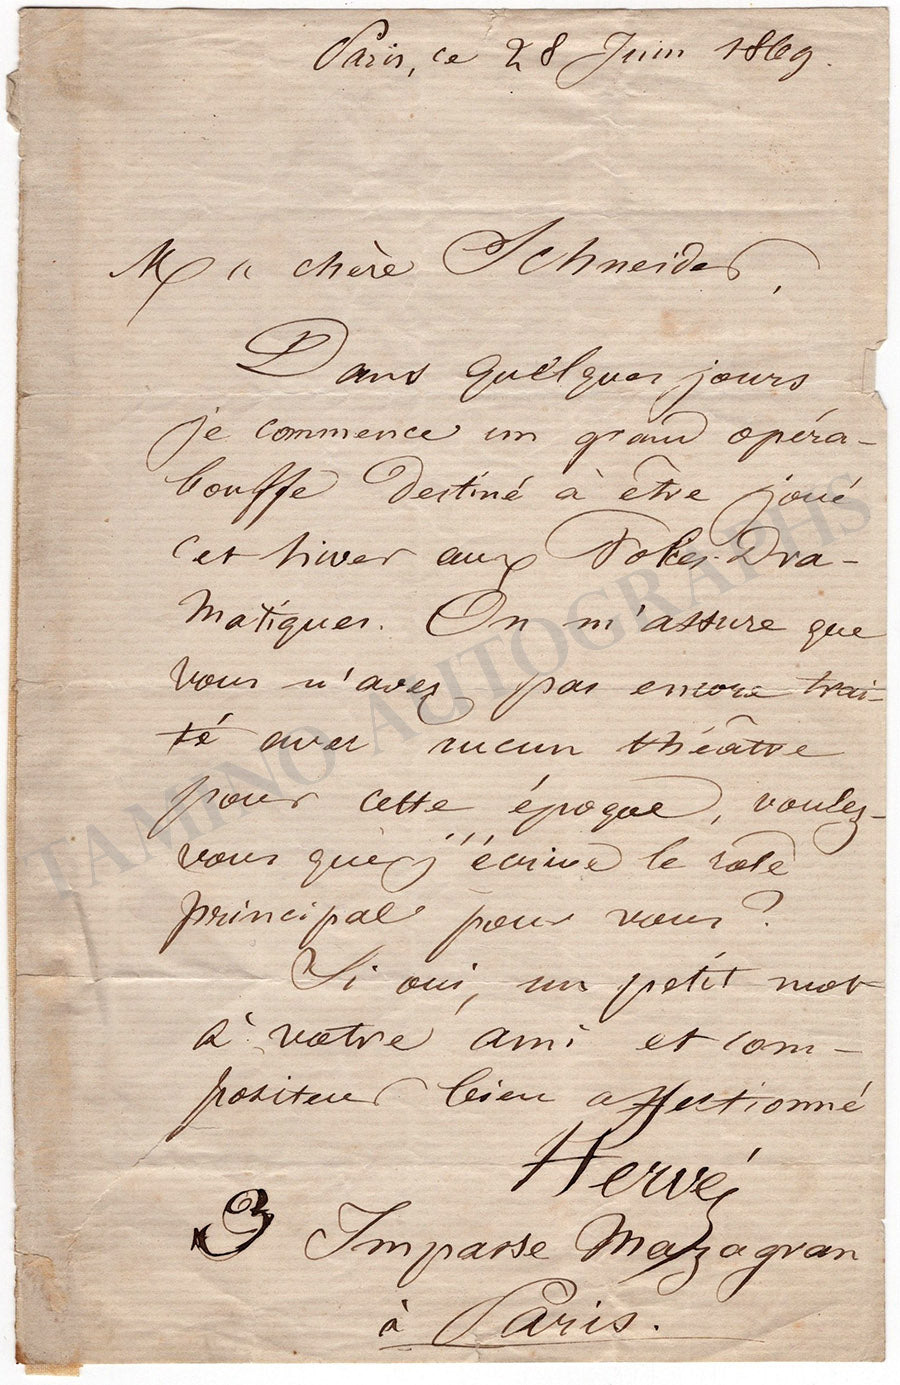 Paris, ce 28 Juin 1869.
Ma chère Schneider,
Dans quelques jours
je commence un grand opéra-
bouffe destiné à être joué
cet hiver aux Folies-Dra-
matiques. On m'assure que
vous n'avez pas encore trai-
té avec aucun théâtre
pour cette époque, voulez-
vous que j'écrive le rôle
principal pour vous?
Si oui, un petit mot
à votre ami et com-
positeur bien affectionné
Hervé
3 Impasse Mazagran
à Paris.
TAMINO AUTOGRAPHS